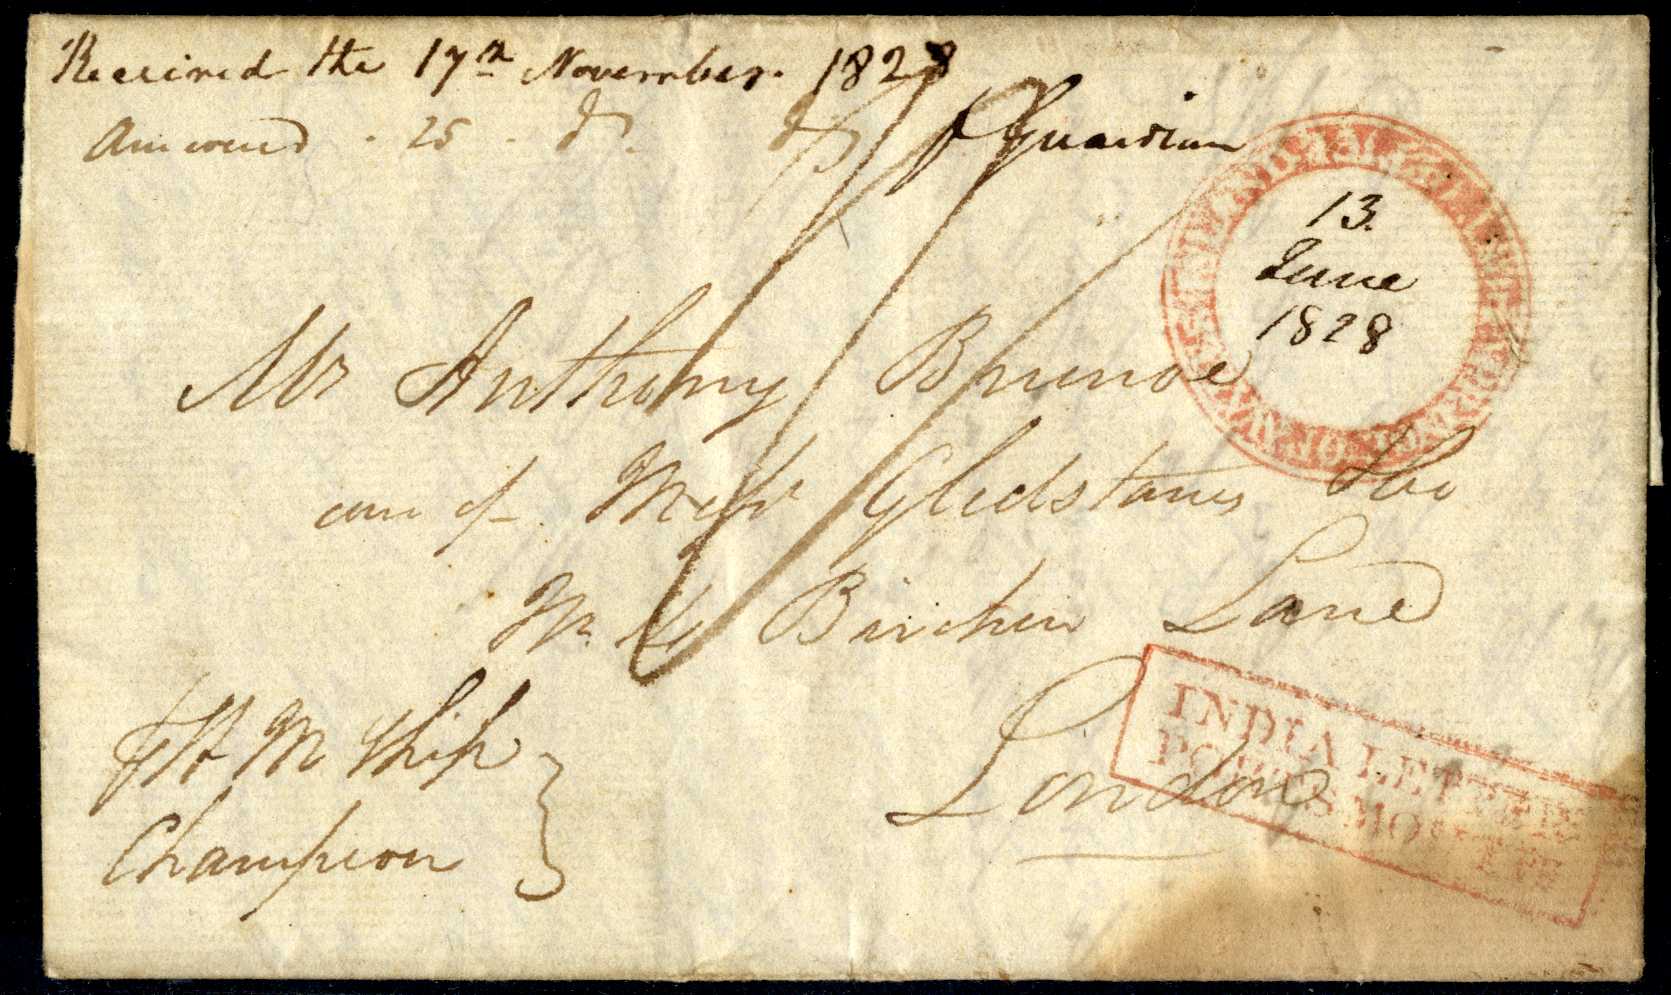 Received the 17th November. 1828
Answered . 25 . do. do p Guardian
13.
June
1828
Mr Anthony Brunoe
care of Messrs Gledstanes &Co
Birchin Lane
London
H M Ship
Champion
INDIA LETTER
PORTSMOUTH